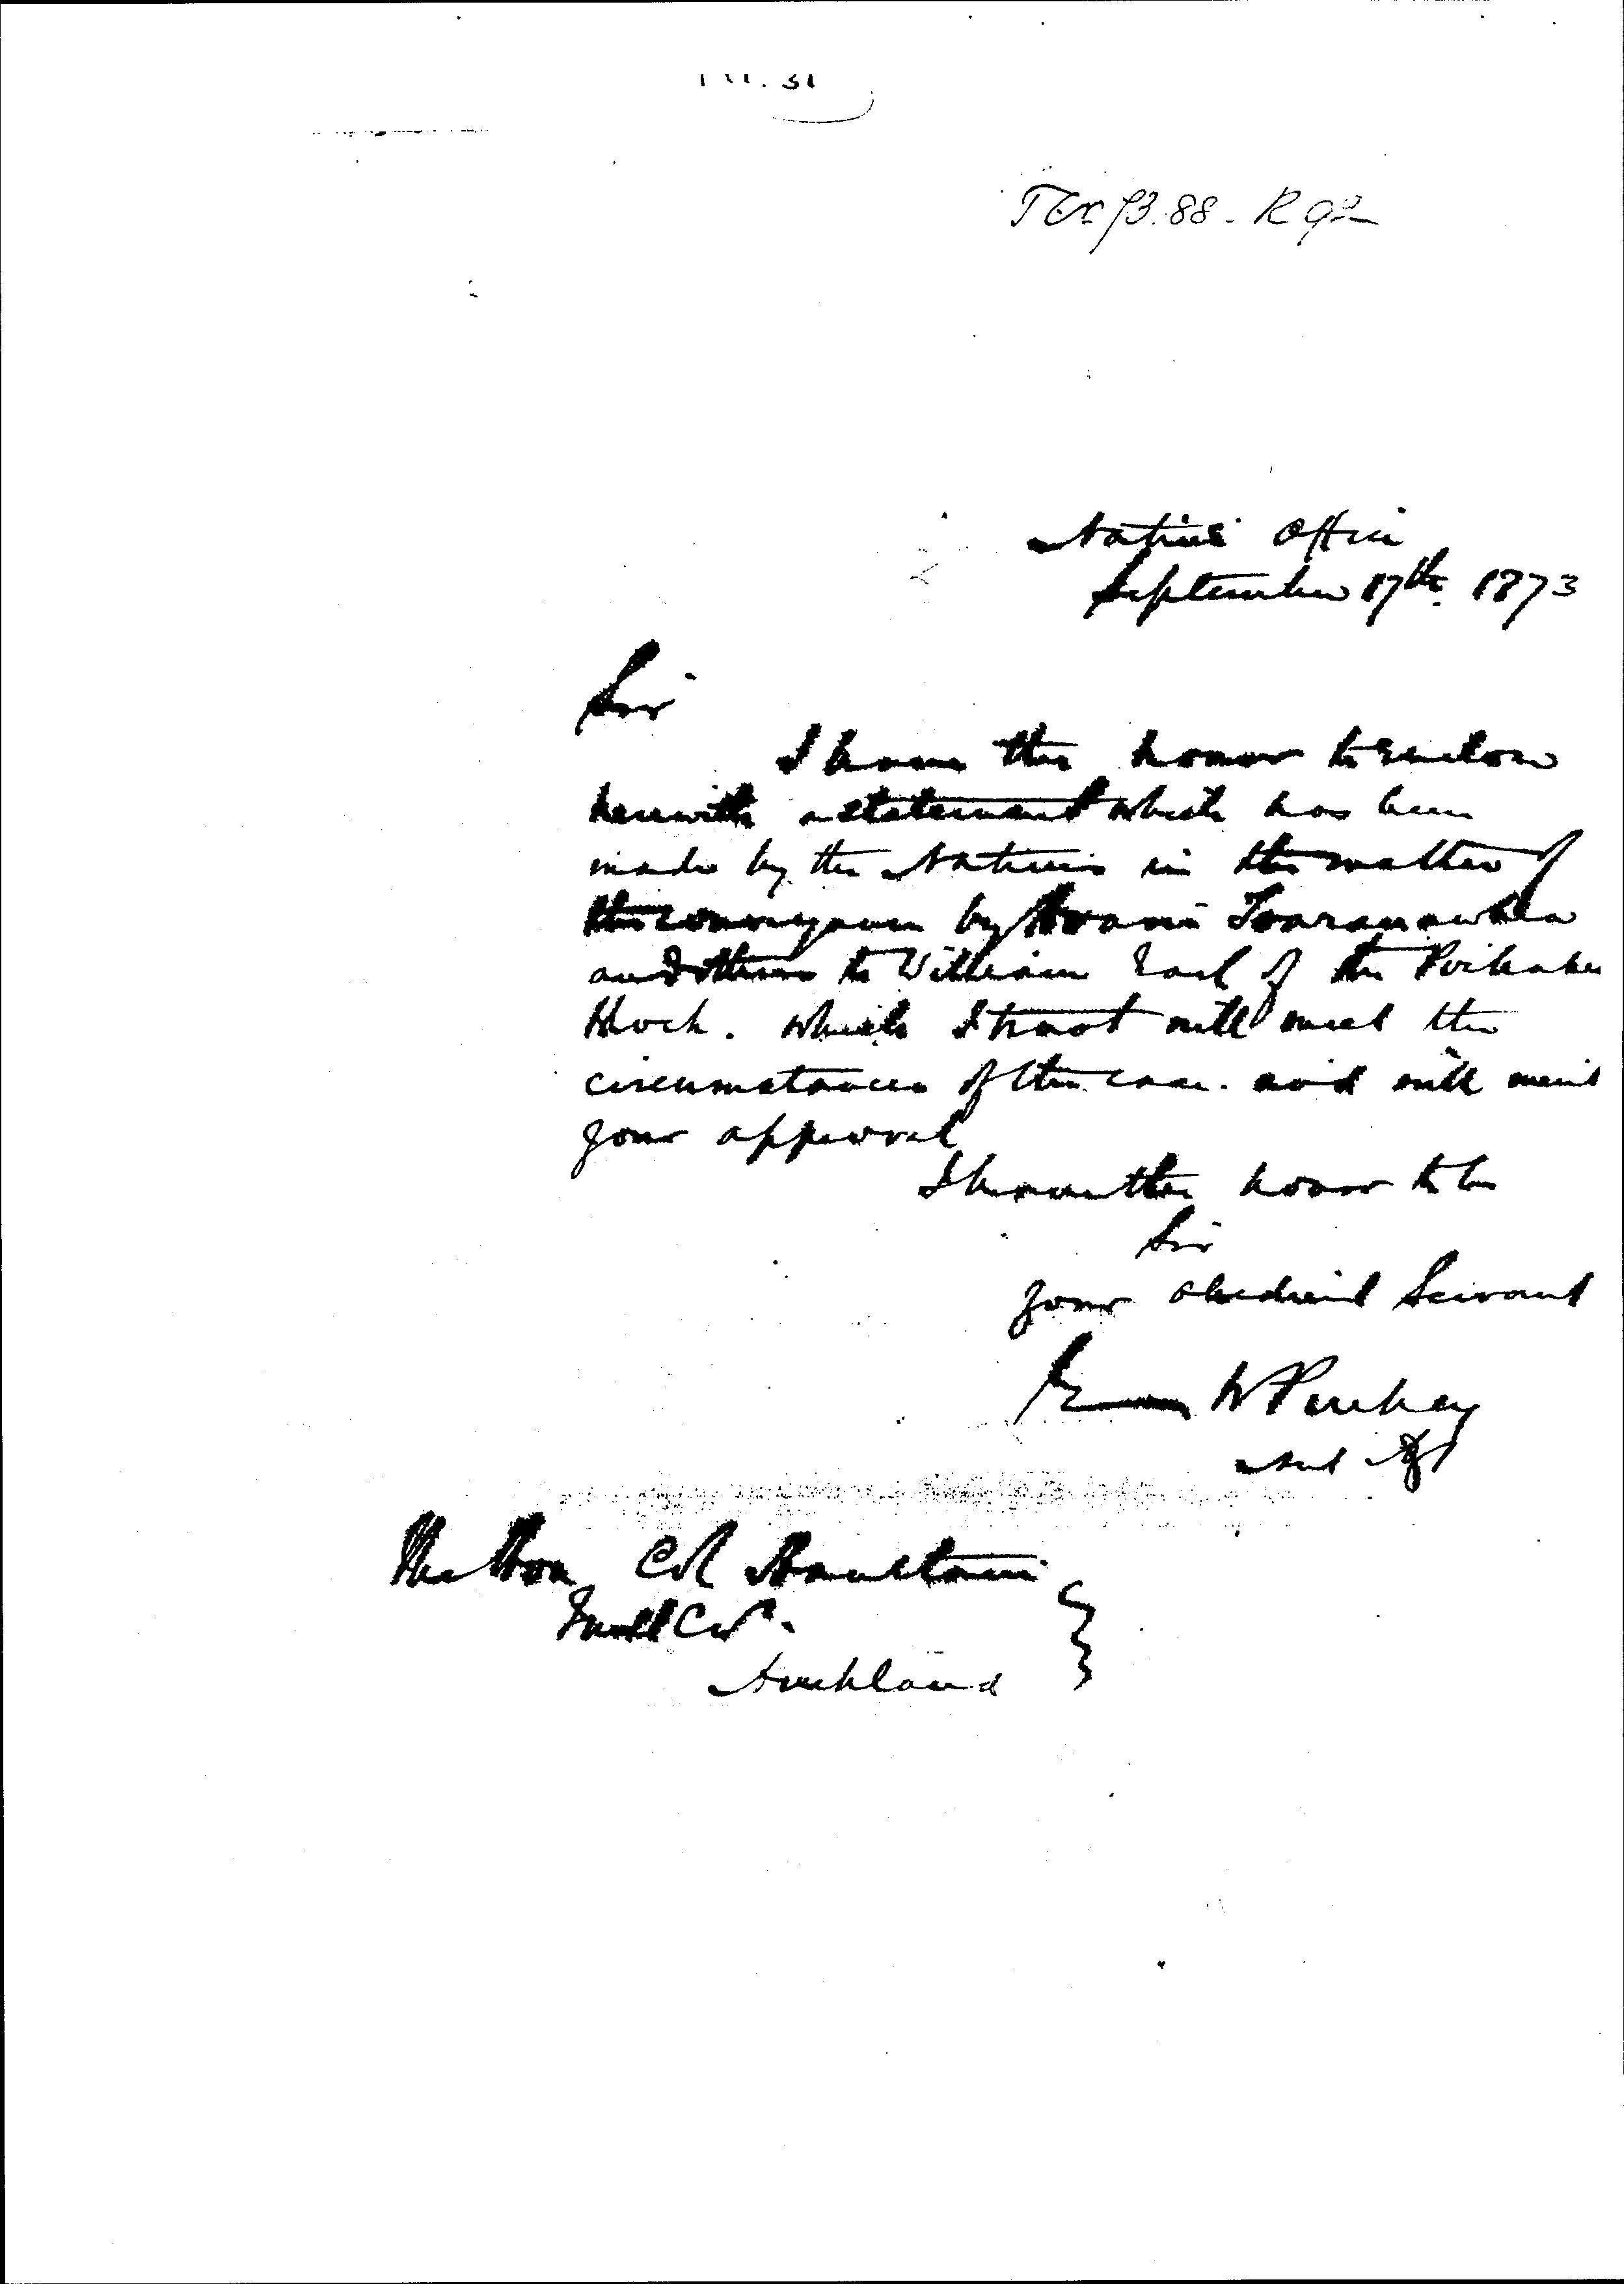 Native Office
September 17th 1873
Sir
I have the honor to enclose
herewith a statement which has been
made by the Natives in the matter of
the conveyance by
and others to William Earl of the
Block. which I trust will meet the
circumstances of the case. and will merit
your approval
I have the honor to be
Sir
your obedient Servant
W Puckey
The Hon Col Haultain
Auckland